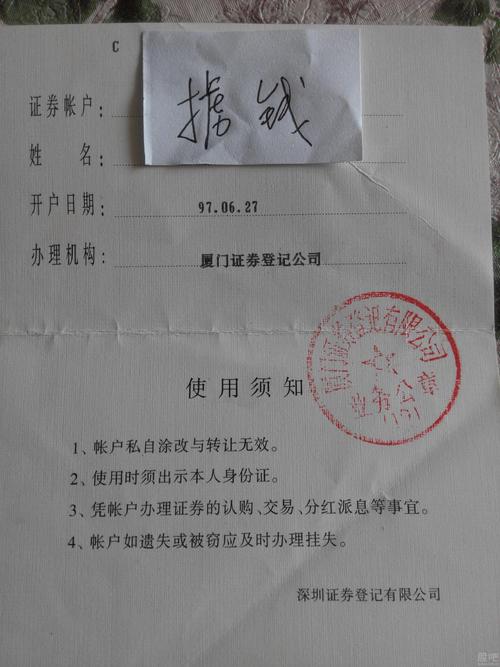 C
掳钱
证券帐户:
姓 名:
开户日期: 97.06.27
办理机构: 厦门证券登记公司
厦门证券登记有限公司
业务公章
使用须知
1、帐户私自涂改与转让无效。
2、使用时须出示本人身份证。
3、凭帐户办理证券的认购、交易、分红派息等事宜。
4、帐户如遗失或被窃应及时办理挂失。
深圳证券登记有限公司
股吧